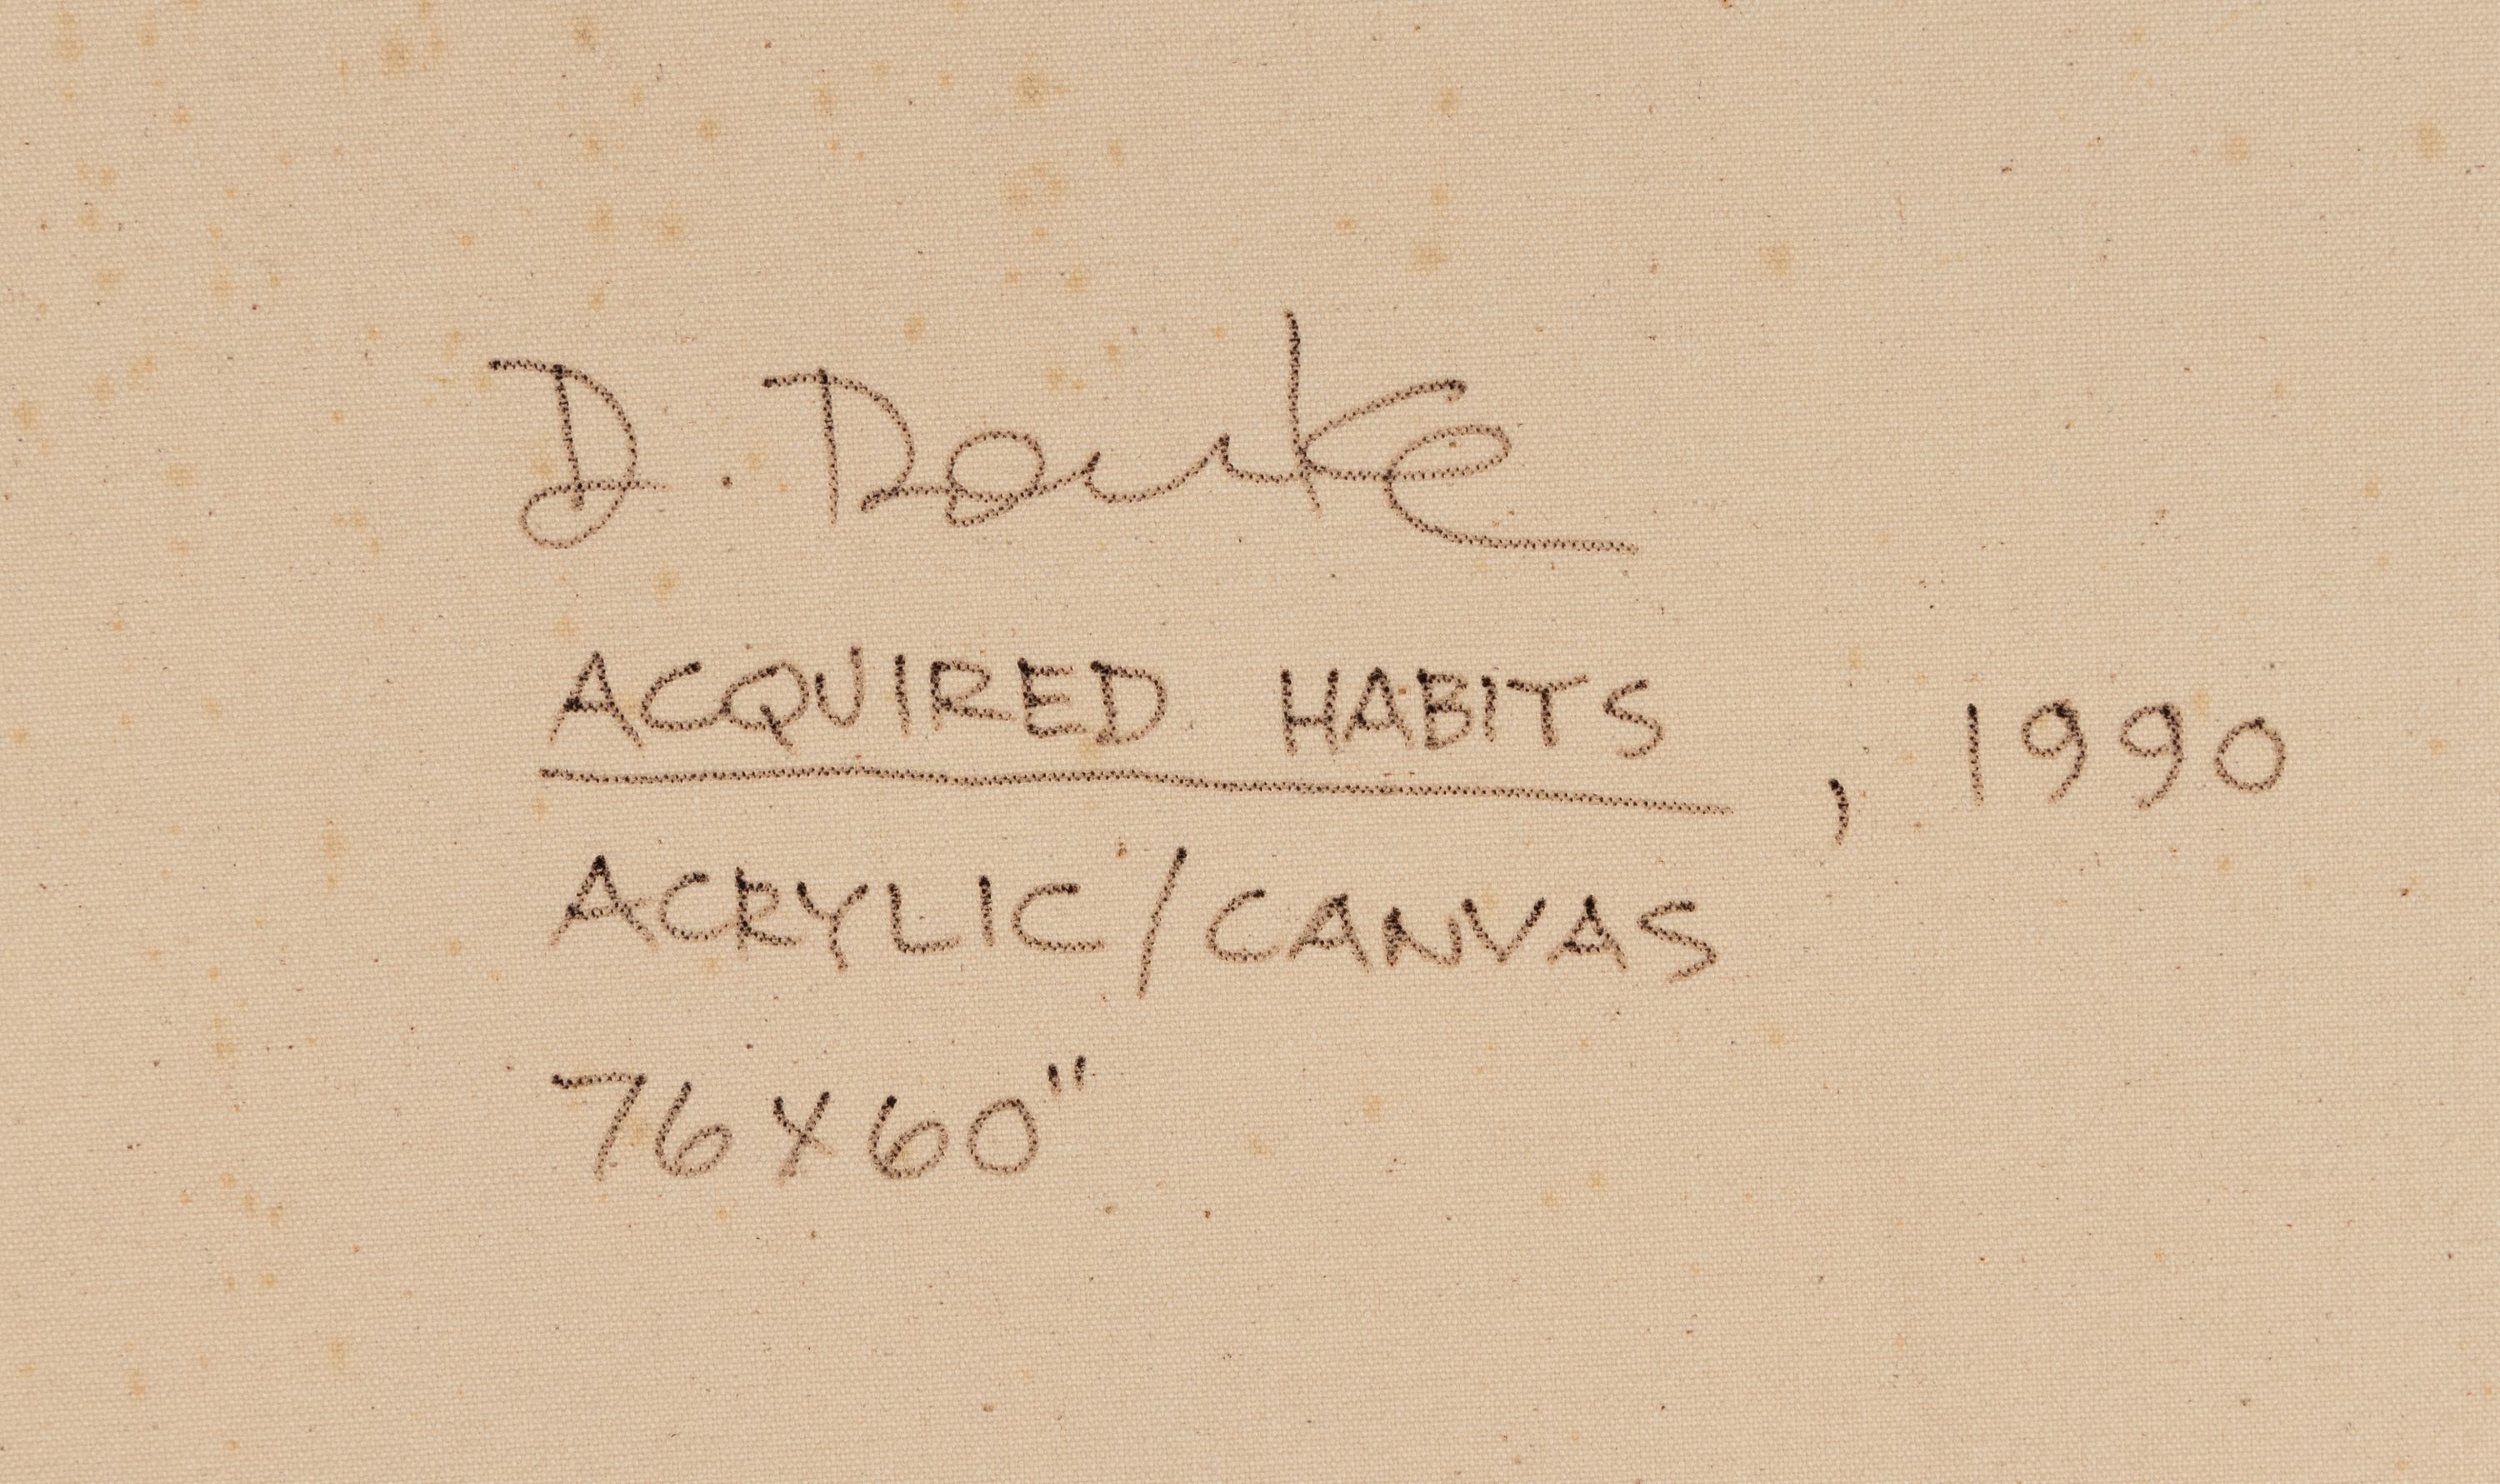 D.
ACQUIRED HABITS, 1990
ACRYLIC/CANVAS
76 x 60"